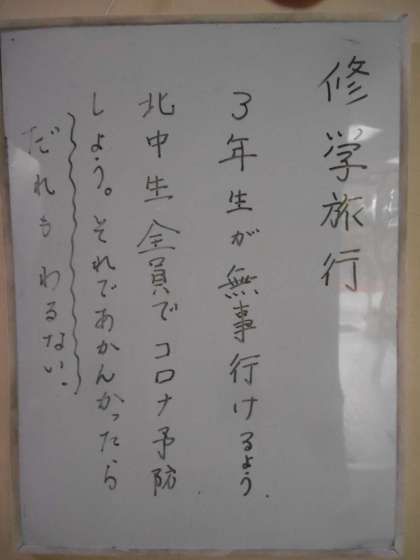 修学旅行
3年生が無事行けるよう
北中生全員でコロナ予防
しよう。それであかんかったら
だれもわるない。